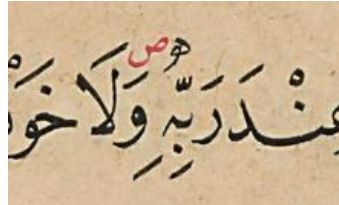 عِنْدَ رَبِّهِ وَلَا خَوْ